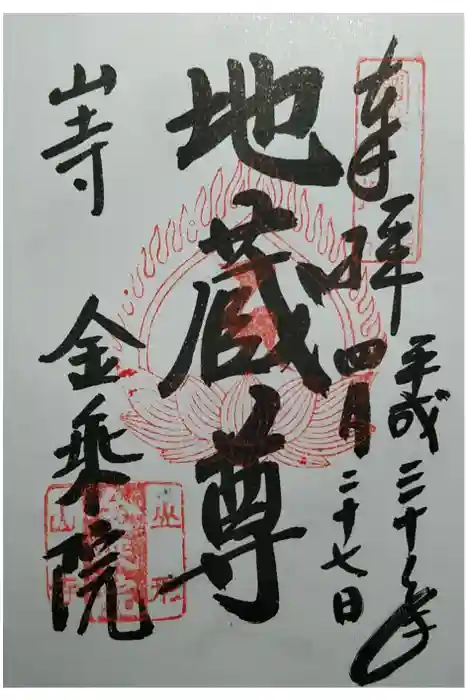 奉拝
平成三十年
四月二十七日
地蔵尊
山寺 金乗院